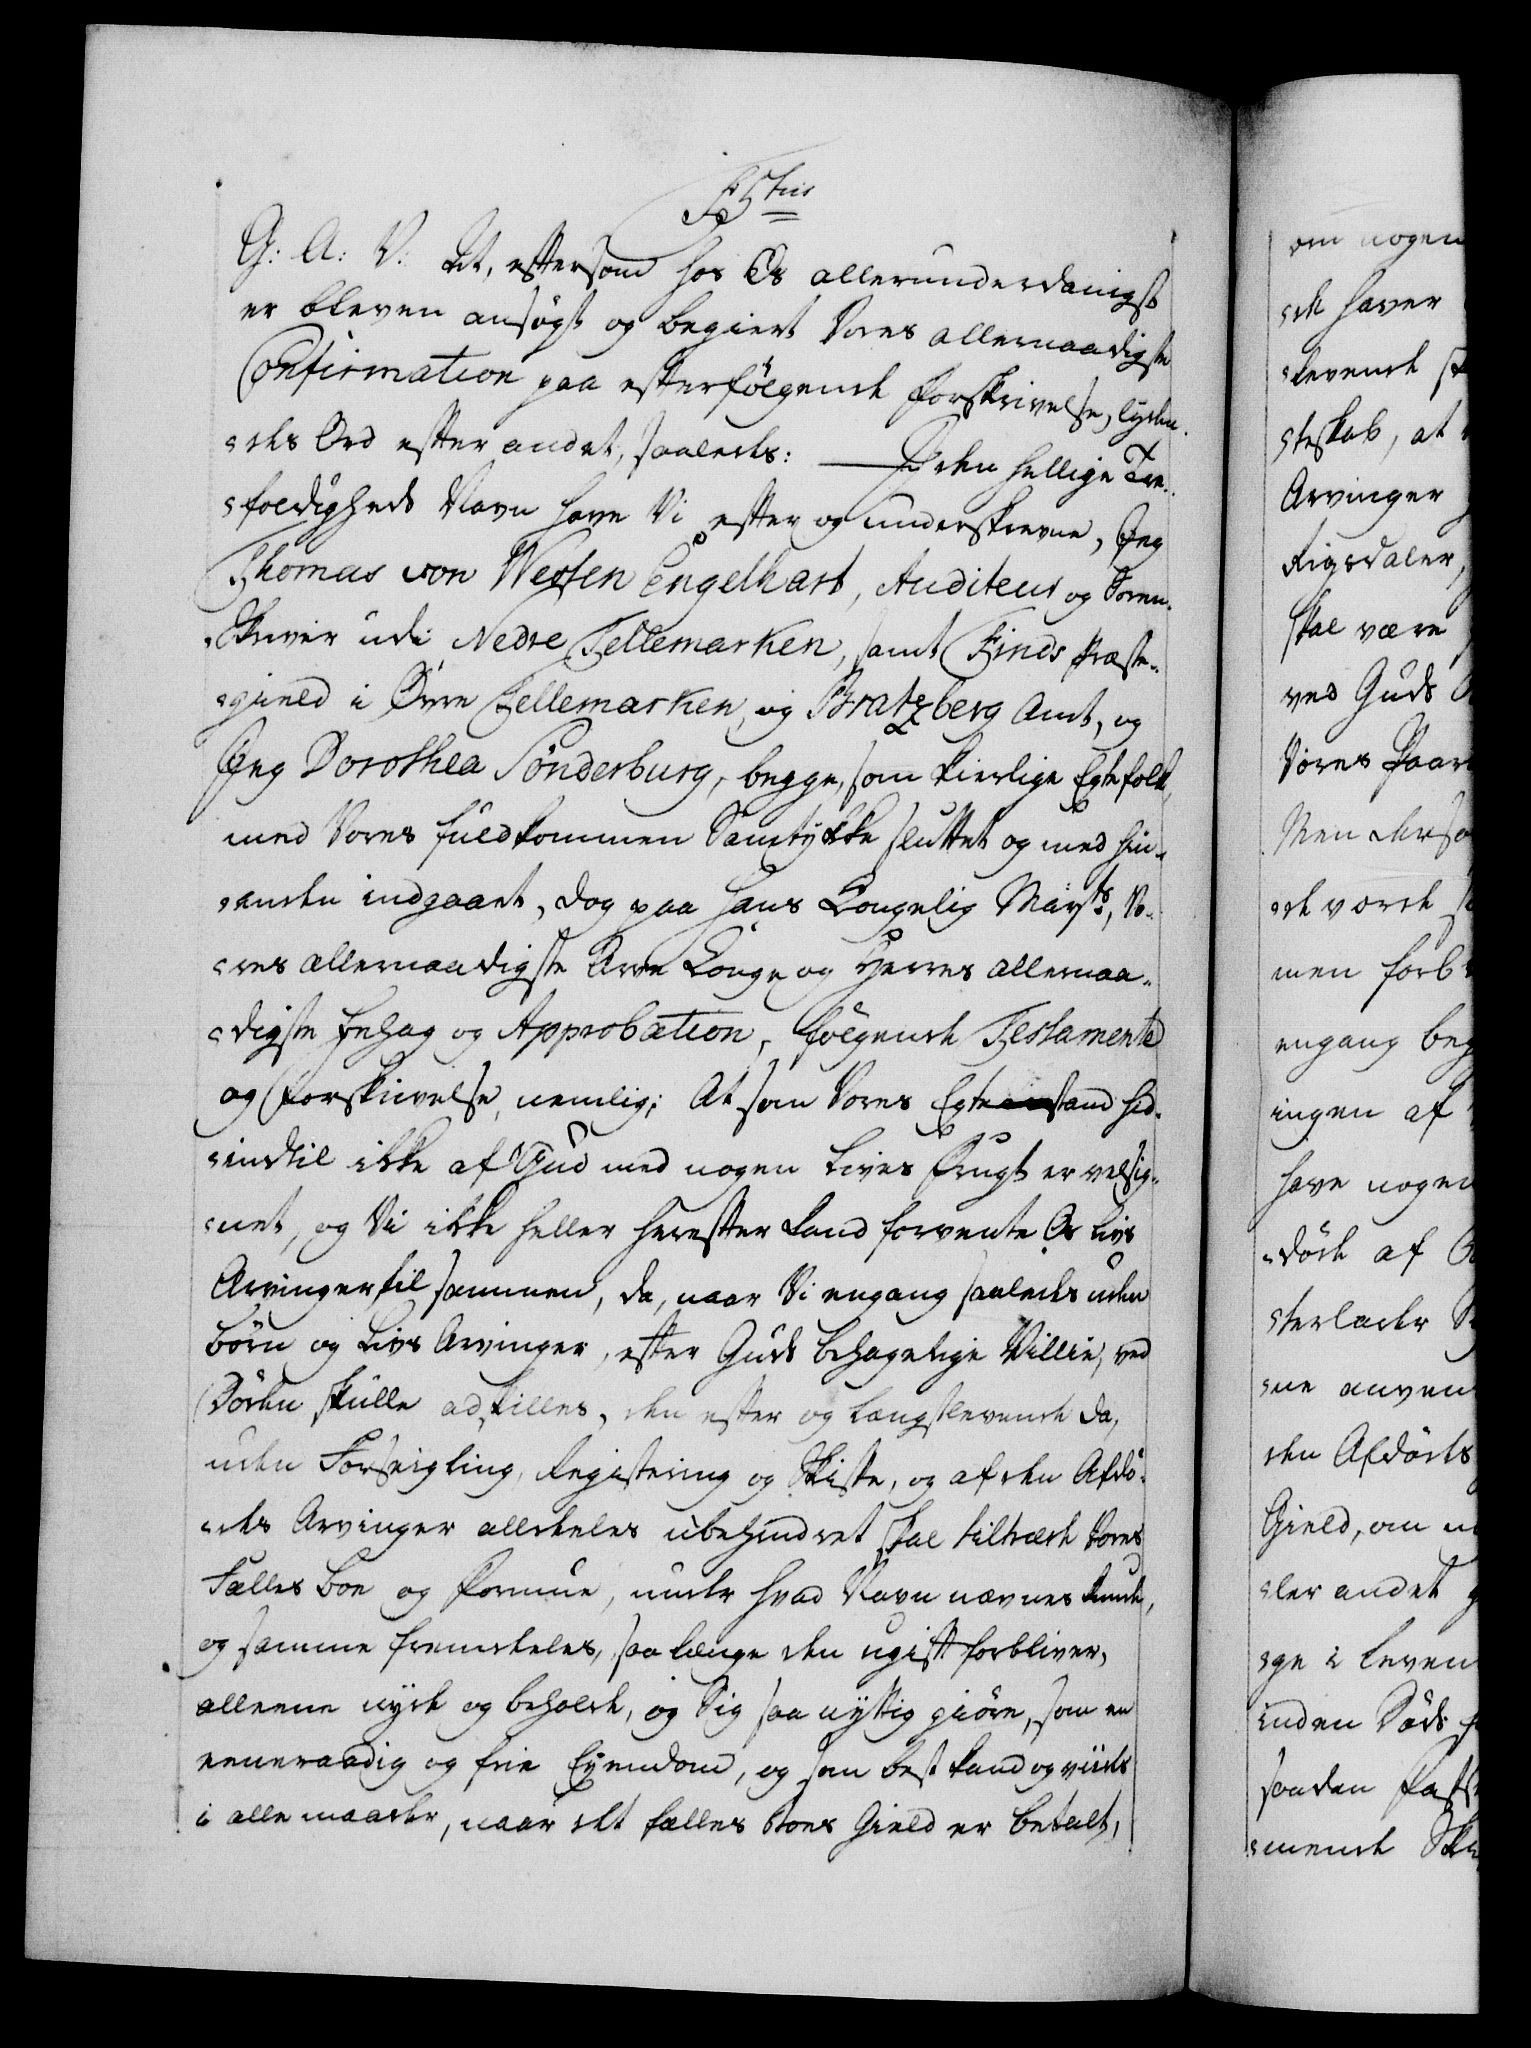 F 5tus
G: A: V: At, eftersom hos Os allerunderdanigst
er bleven ansøgt og begiert Vores allernaadigste
Confirmation paa efterfølgende Forskrivelse, lyden-
-des Ord efter andet, saaledes: I den hellige Tre-
-foldigheds Navn have Vi efter og underskrevne, Jeg
Thomas von Westen Engelhart, Auditeur og Soren-
-Skriver udi Nedre Tellemarken, samt Tinds Præste-
-gield i Øvre Tellemarken, og Bratzberg Amt, og
Jeg Dorothea Sønderburg, begge, som kierlige Egtefolk,
med Vores fuldkommen Samtykke sluttet og med hin-
-anden indgaaet, dog paa Hans Kongelig Mayts, Vo-
-res allernaadigste Arve Konge og Herres allernaa-
-digste behag og Approbation, følgende Testamente
og Forskrivelse, nemlig; At som Vores Egtestand hid-
-indtil ikke af Gud med nogen Lives Frugt er velsig-
-net, og Vi ikke heller herefter kand forvente Os Livs
Arvinger tilsammen, da, naar Vi engang saaledes uden
børn og Livs Arvinger, efter Guds behagelige Villie, ved
Døden skulle adskilles, den efter og længstlevende da,
uden Forseigling, Registering og Skifte, og af den Afdø-
-des Arvinger alldeles ubehindret skal tiltræde Vores
Fælles Boe og Formue, under hvad Navn nævnes kunde,
og samme fremdeles, saa længe den ugift forbliver,
alleene nyde og beholde, og Sig saa nyttig giøre, som en
eeneraadig og frie Eyendom, og som best kand og viides
i alle maader, naar det fælles Boes Gield er betalt,
om nogen
-de haver
-levende
-teskab, at
Arvinger
Rigsdaler,
skal være
ved Guds
Vores Paar
Men dersom
-de vorde
men forb
engang beg
ingen af
have nogen
-døde af
-terlader
-ne anven
den Afdødes
Gield, om
-ler andet
-ge i Leven
inden Døds
saadan
-mende